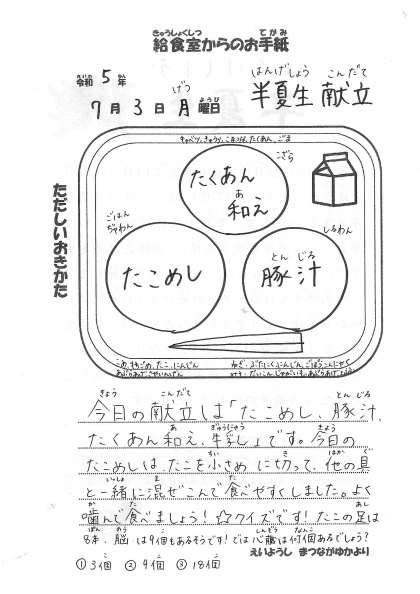 きゅうしょくしつ てがみ
給食室からのお手紙
れいわ ねん
令和 5 年
げつ ようび
7 月 3 日 月 曜日
はんげしょう こんだて
半夏生 献立
ただしいおきかた
キャベツ、きゅうり、こまつな、たくあん、ごま
こざら
たくあん
あ
和え
ごはん
ぢゃわん
たこめし
しるわん
とん じる
豚汁
こめ、もちごめ、たこ、にんじん
あぶらあげ、さやいんげん
ねぎ、ぶたにく、にんじん、ごぼう、こんにゃく
みそ、だいこん、じゃがいも、あぶらあげ
きょう こんだて とん じる
今日の献立は「たこめし、豚汁、
あ ぎゅうにゅう きょう
たくあん和え、牛乳」です。今日の
ちい き ほか ぐ
たこめしは、たこを小さめに切って、他の具
いっしょ ま た
と一緒に混ぜこんで食べやすくしました。よく
か た あし
噛んで食べましょう！☆クイズです！たこの足は
ぽん のう こ しんぞう なんこ
8本、脳は9個もあるそうです！では心臓は何個あるでしょう？
えいようし まつながゆかより
①3個 ②9個 ③18個